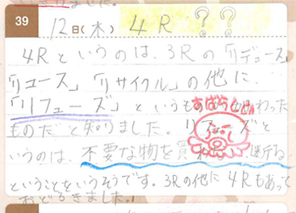 39
12日(木) 4R ??
4Rというのは、3Rの「リデュース」
「リユース」「リサイクル」の他に、
「リフューズ」というも わった
ものだと知りました。リフューズと
すばらしい
いうのは、不要な物を買 断る
ということをいうそうです。3Rの他に4Rもあって
おどろきました。